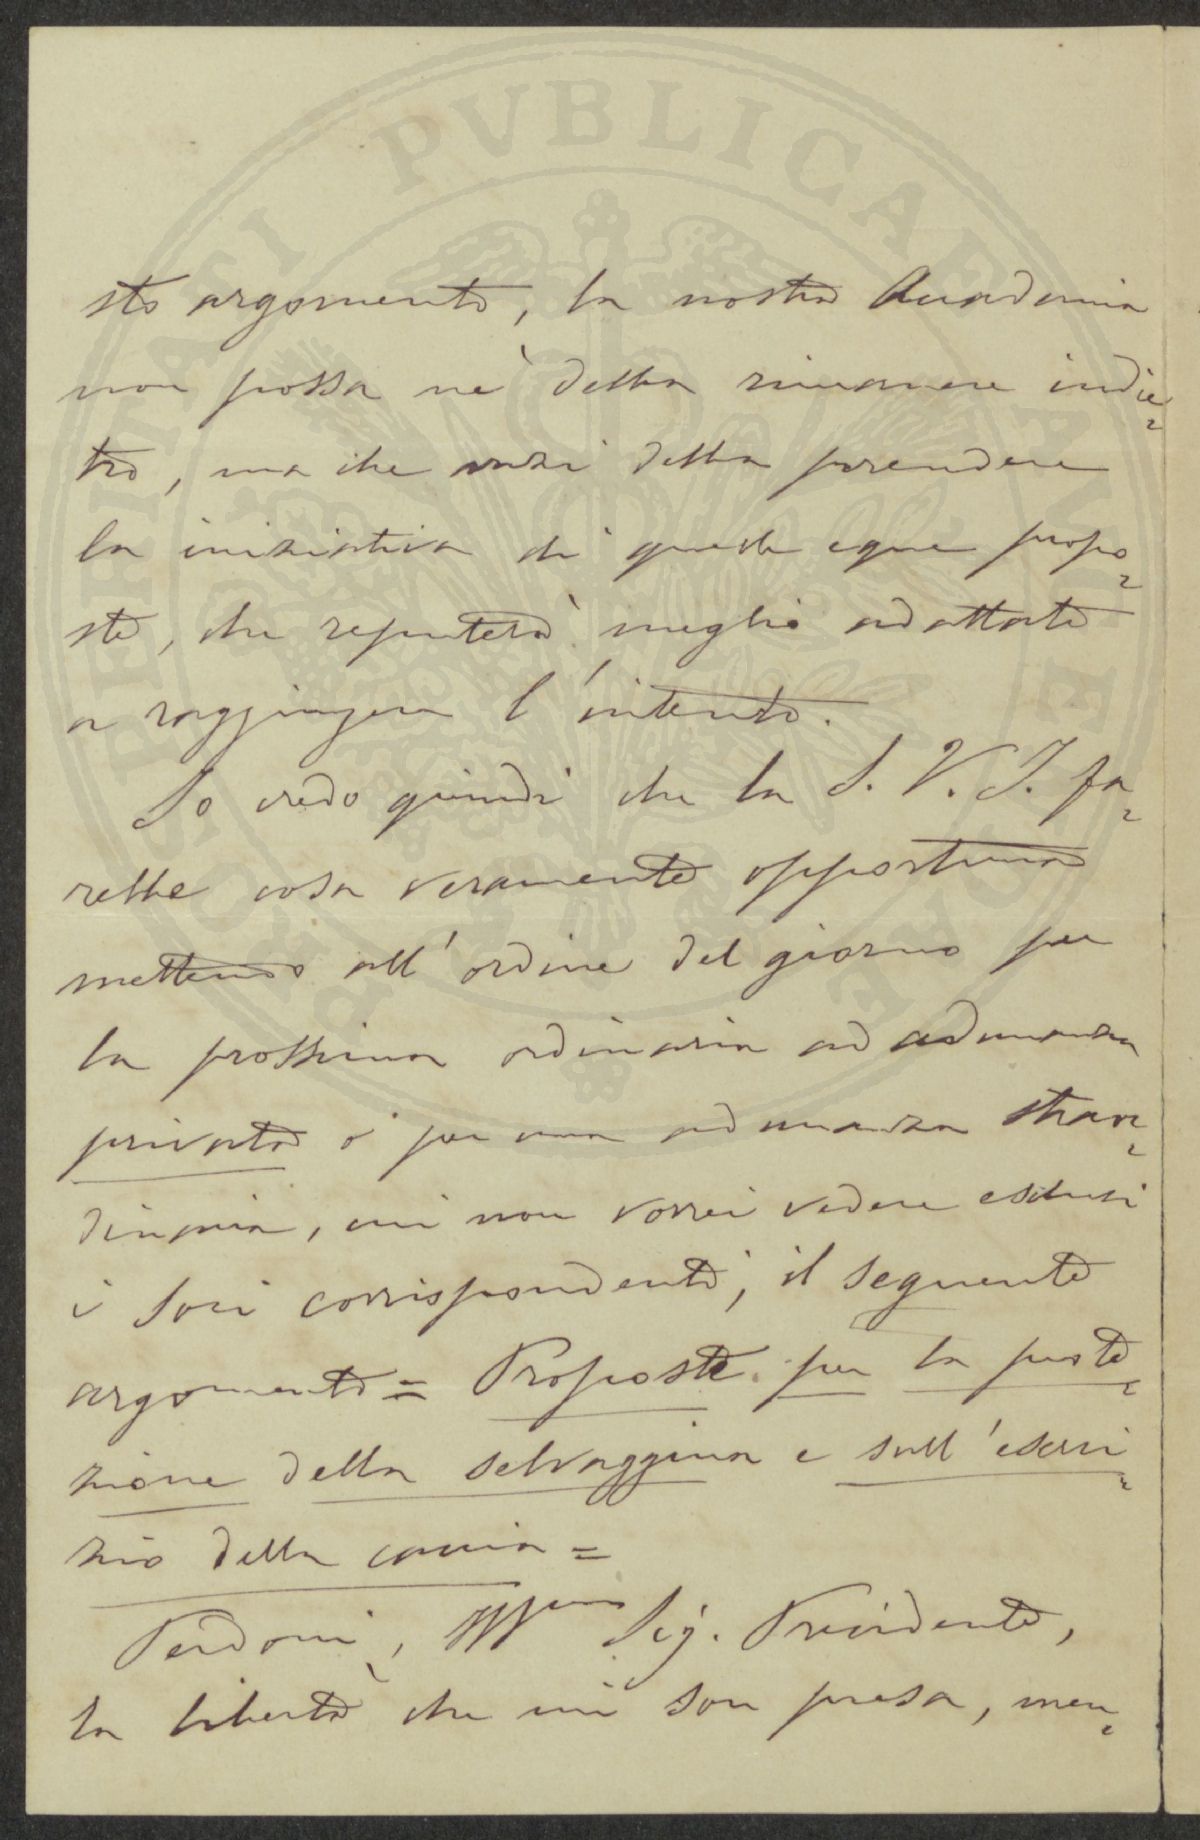 sto argomento, la nostra Accademia
non possa nè debba rimanere indie=
tro, ma che anzi debba prendere
la iniziativa di quelle eque propo=
ste, che reputerà meglio adattate
a raggiungere l'intento.
Io credo quindi che la S. V. I. fa=
rebbe cosa veramente opportuna
mettendo all'ordine del giorno per
la prossima ordinaria ad adunanza
privata o per una adunanza straor=
dinaria, cui non vorrei vedere esclusi
i Soci corrispondenti, il seguente
argomento = Proposte per la prote=
zione della selvaggina e sull'eserci=
zio della caccia =
Perdoni, Illmo Sig. Presidente,
la libertà che mi son presa, men=
PERITATI PVBLICAE